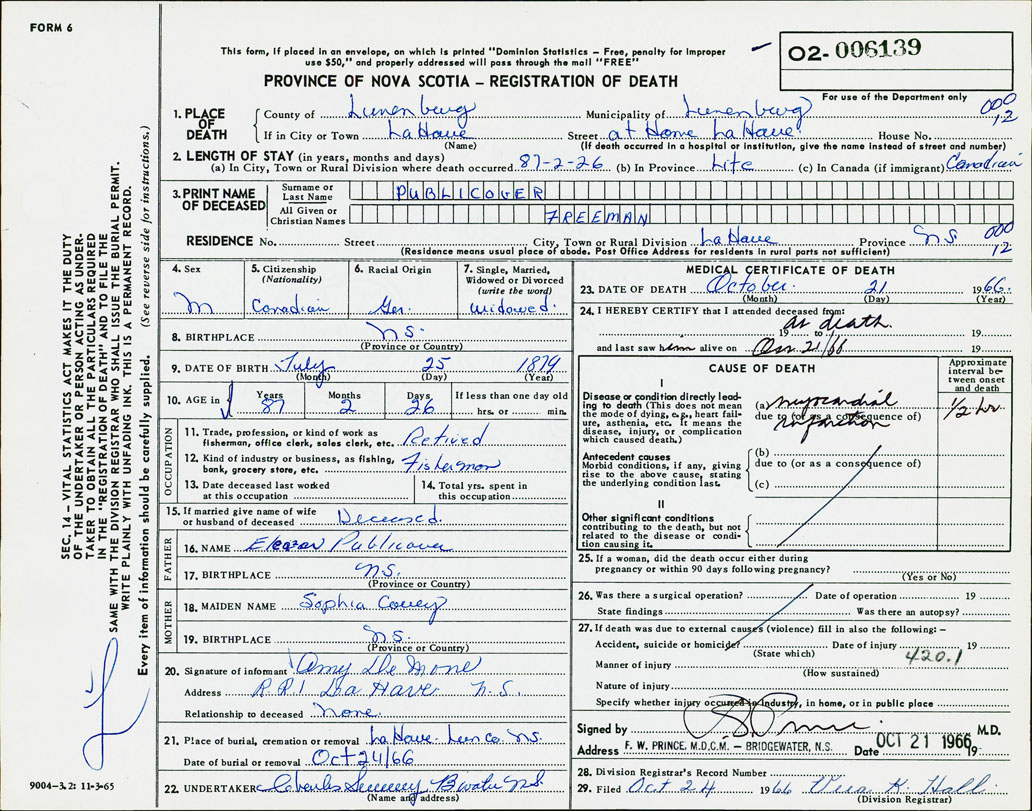 FORM 6
This form, if placed in an envelope, on which is printed "Dominion Statistics – Free, penalty for improper
use $50," and properly addressed will pass through the mail "FREE"
O2- 006139
PROVINCE OF NOVA SCOTIA – REGISTRATION OF DEATH
For use of the Department only
1. PLACE OF DEATH County of Lunenburg Municipality of Lunenburg 000 12
If in City or Town LaHave Street at Home LaHave House No.
(Name) (If death occurred in a hospital or institution, give the name instead of street and number)
2. LENGTH OF STAY (in years, months and days)
(a) In City, Town or Rural Division where death occurred 87-2-26 (b) In Province Life (c) In Canada (if immigrant) Canadian
3. PRINT NAME OF DECEASED Surname or Last Name PUBLICOVER
All Given or Christian Names FREEMAN
RESIDENCE No. Street City, Town or Rural Division LaHave Province N.S. 000 12
(Residence means usual place of abode. Post Office Address for residents in rural parts not sufficient)
4. Sex M
5. Citizenship (Nationality) Canadian
6. Racial Origin Ger.
7. Single, Married, Widowed or Divorced (write the word) Widowed.
8. BIRTHPLACE N.S.
(Province or Country)
9. DATE OF BIRTH July 25 1879
(Month) (Day) (Year)
10. AGE in Years Months Days If less than one day old
87 2 26 hrs. or min.
OCCUPATION
11. Trade, profession, or kind of work as fisherman, office clerk, sales clerk, etc. Retired
12. Kind of industry or business, as fishing, bank, grocery store, etc. Fisherman
13. Date deceased last worked at this occupation
14. Total yrs. spent in this occupation
15. If married give name of wife or husband of deceased Deceased.
FATHER
16. NAME Eleazar Publicover
17. BIRTHPLACE N.S.
(Province or Country)
MOTHER
18. MAIDEN NAME Sophia Covey
19. BIRTHPLACE N.S.
(Province or Country)
20. Signature of informant Amy De Mone
Address R.R.1 La Have N.S.
Relationship to deceased none.
21. Place of burial, cremation or removal LaHave Lun Co. N.S.
Date of burial or removal Oct 24/66
22. UNDERTAKER Charles Sweeny B'water N.S.
(Name and address)
MEDICAL CERTIFICATE OF DEATH
23. DATE OF DEATH October 21 1966.
(Month) (Day) (Year)
24. I HEREBY CERTIFY that I attended deceased from:
at death.
19 to 19
and last saw him alive on Oct 21/66 19
CAUSE OF DEATH
Approximate interval between onset and death
I
Disease or condition directly leading to death (This does not mean the mode of dying, e.g., heart failure, asthenia, etc. It means the disease, injury, or complication which caused death.)
(a) myocardial infarction 1/2 hr
due to (or as a consequence of)
Antecedent causes
Morbid conditions, if any, giving rise to the above cause, stating the underlying condition last.
(b)
due to (or as a consequence of)
(c)
II
Other significant conditions contributing to the death, but not related to the disease or condition causing it.
25. If a woman, did the death occur either during pregnancy or within 90 days following pregnancy?
(Yes or No)
26. Was there a surgical operation? Date of operation 19
State findings Was there an autopsy?
27. If death was due to external causes (violence) fill in also the following: –
Accident, suicide or homicide? Date of injury 19
(State which) 420.1
Manner of injury
(How sustained)
Nature of injury
Specify whether injury occurred in industry, in home, or in public place
Signed by Prince M.D.
Address F. W. PRINCE, M.D.C.M. – BRIDGEWATER, N.S. Date OCT 21 1966 19
28. Division Registrar's Record Number
29. Filed Oct 24 1966 Vera K. Hall
(Division Registrar)
SEC. 14 – VITAL STATISTICS ACT MAKES IT THE DUTY
OF THE UNDERTAKER OR PERSON ACTING AS UNDER-
TAKER TO OBTAIN ALL THE PARTICULARS REQUIRED
IN THE "REGISTRATION OF DEATH" AND TO FILE THE
SAME WITH THE DIVISION REGISTRAR WHO SHALL ISSUE THE BURIAL PERMIT.
WRITE PLAINLY WITH UNFADING INK. THIS IS A PERMANENT RECORD.
Every item of information should be carefully supplied. (See reverse side for instructions.)
9004-3.2: 11-3-65